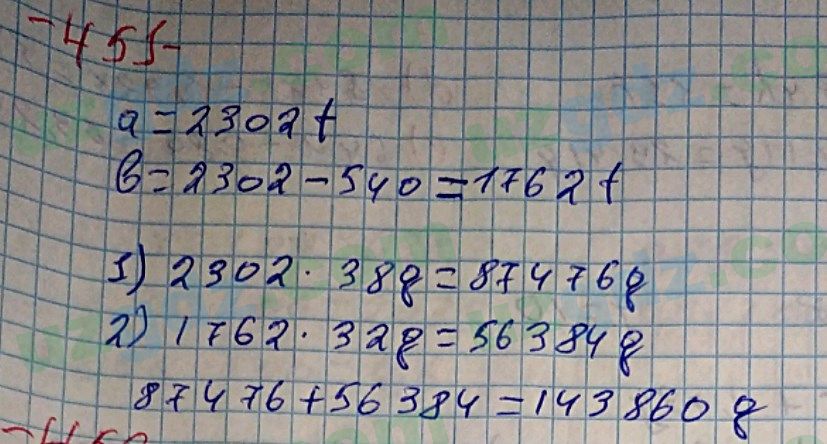 -455-
a = 2302 t
b = 2302 - 540 = 1762 t
1) 2302 · 38 g = 87476 g
2) 1762 · 32 g = 56384 g
87476 + 56384 = 143860 g